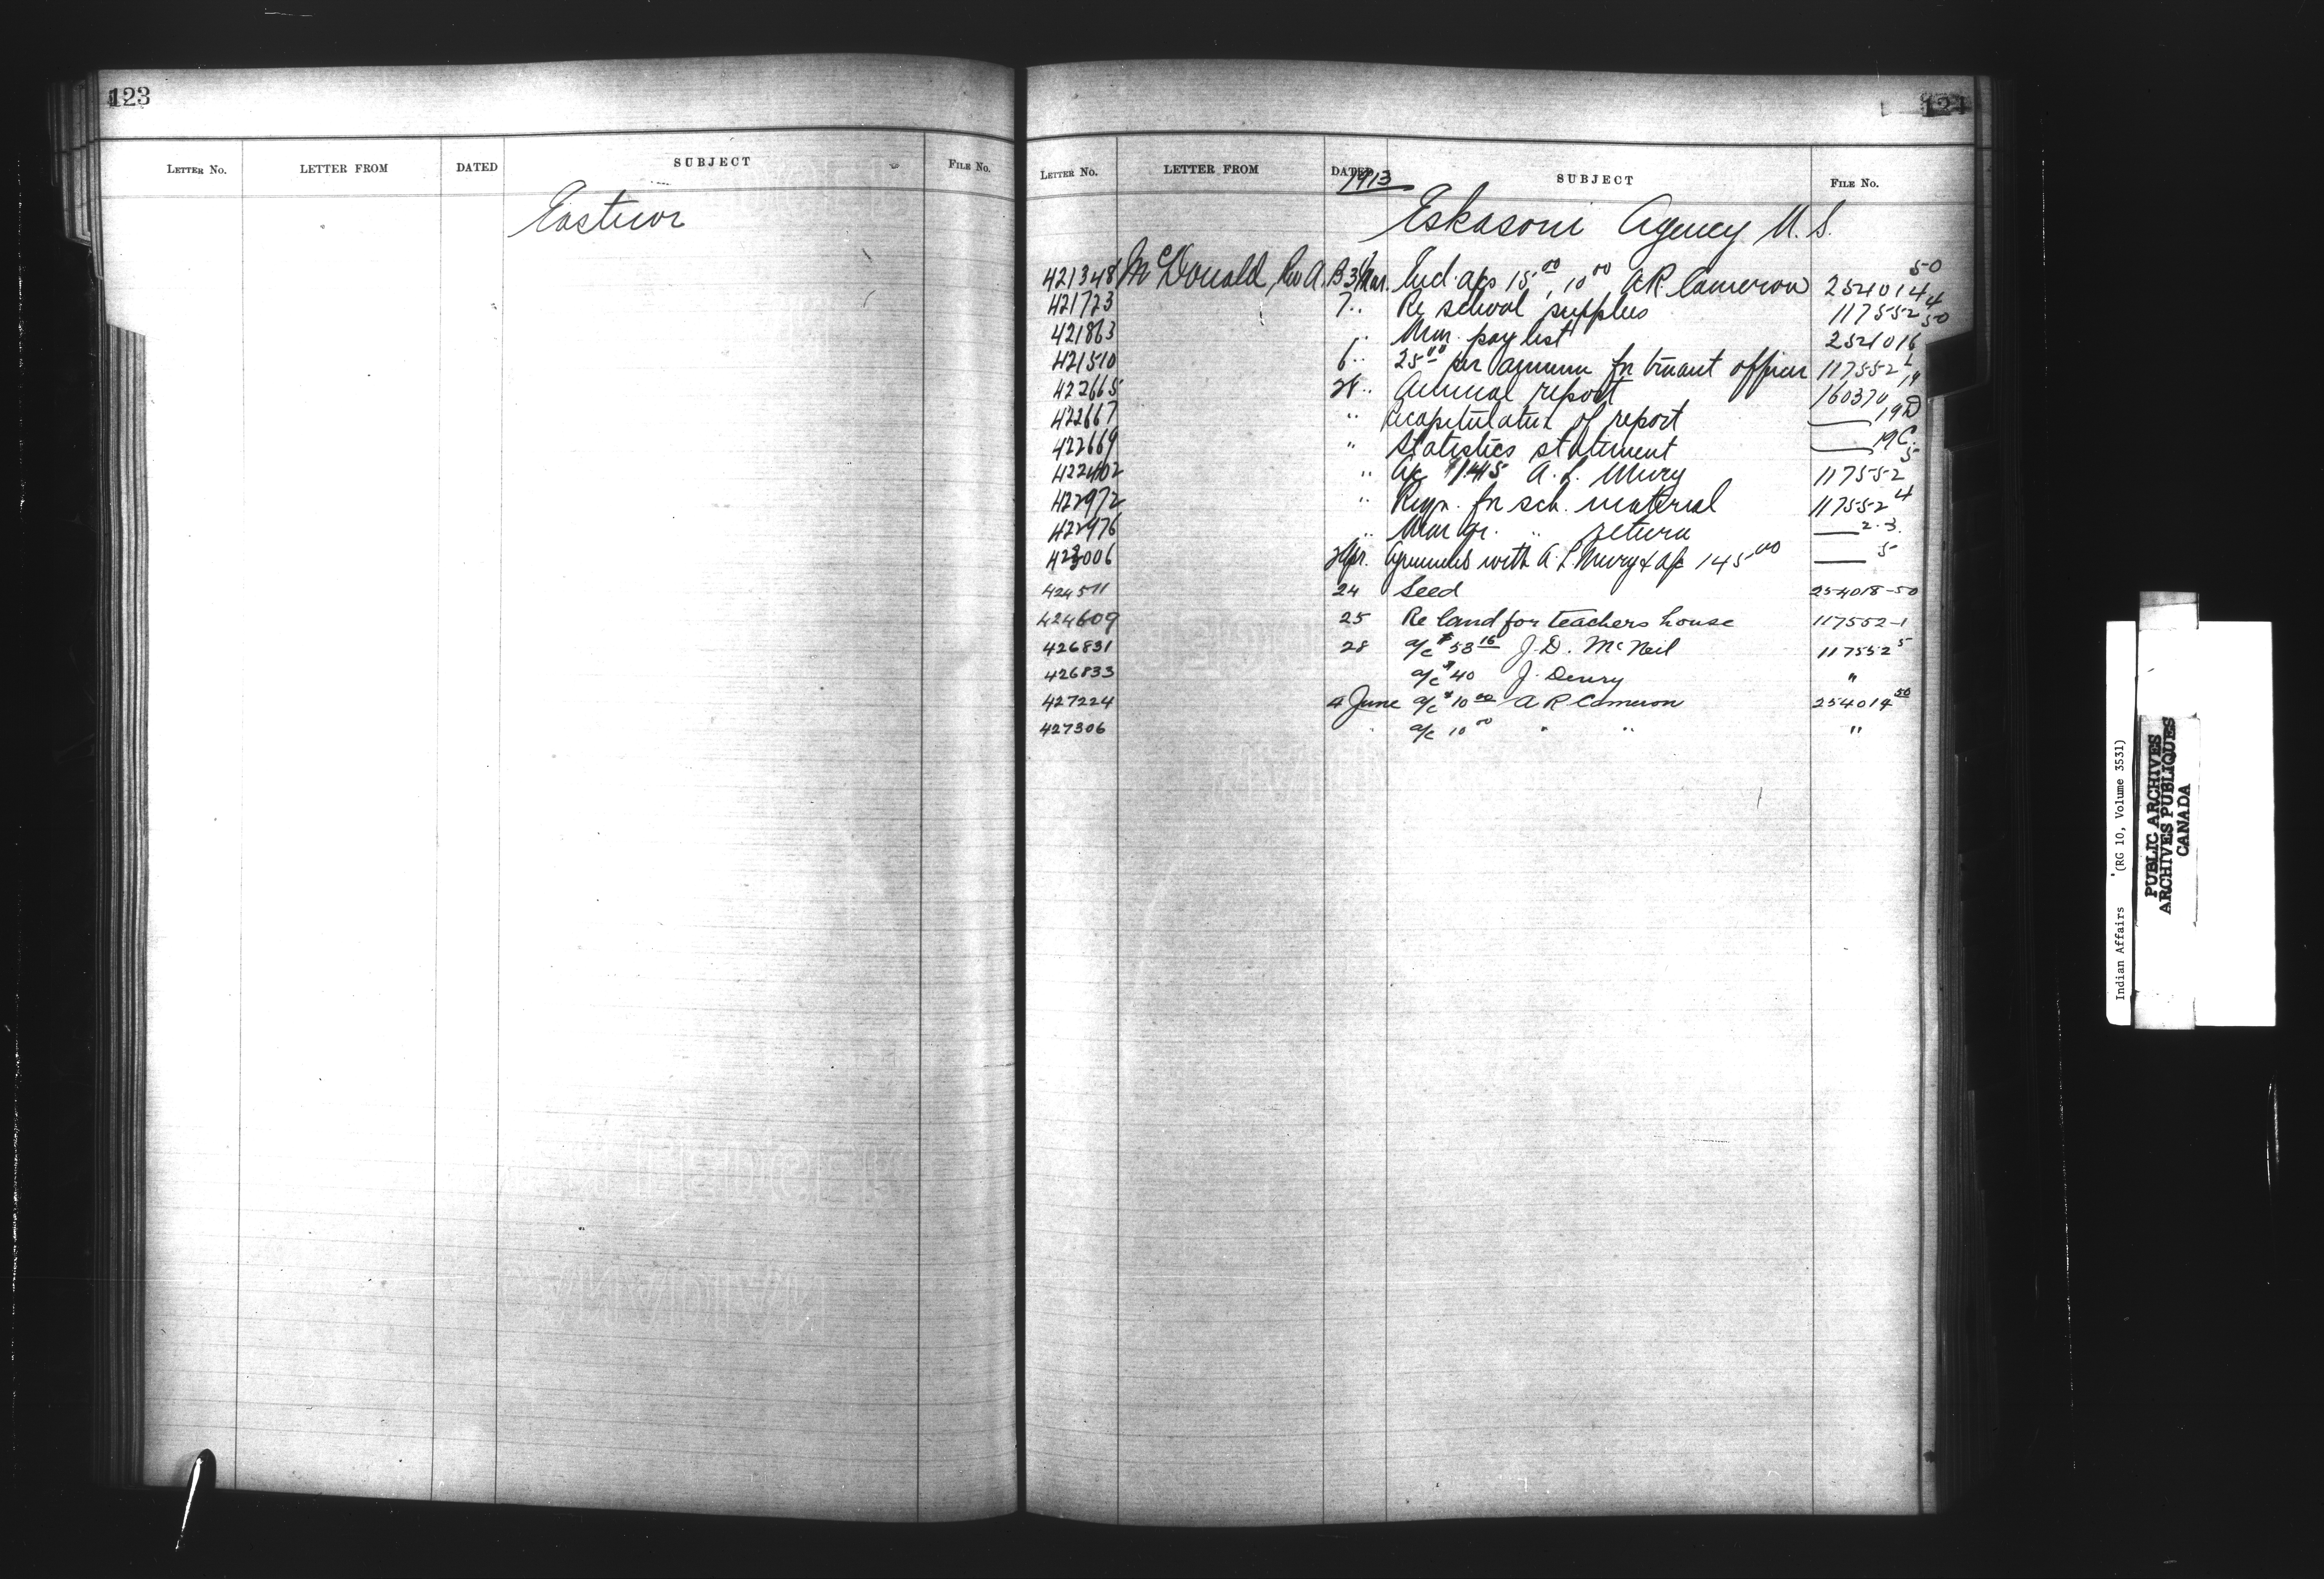 123
LETTER NO. LETTER FROM DATED SUBJECT FILE No.
124
LETTER NO. LETTER FROM DATED SUBJECT FILE No.
1913
Eskasoni Agency N. S.
421348 McDonald, Rev A. B 3 Mar. Med. a/cs 15.00, 10.00 A R Cameron 254014 50
421723 7 " Re school supplies 117552 4
421863 " Mar. pay list 50
421510 6 " 25.00 per annum for truant officer 117552
422665 28 " Annual report 160370 19
422667 " Recapitulation of report —— 19 D
422669 " Statistics statement —— 19 C.
422402 " A/c A. L. 117552 5
422972 " Reqn. for sch. material 117552 4
422976 " Mar qr. " return —— 2.3.
423006 2 Apr. with A. L. & a/c 145.00 —— 5
424511 24 Seed 254018-50
424609 25 Re land for teachers house 117552-1
426831 28 a/c $58 16 J. D. McNeil 117552 5
426833 a/c $40 J. Denny "
427224 4 June a/c $10 00 A R Cameron 254014 50
427306 " a/c 10 00 " " "
Indian Affairs (RG 10, Volume 3531)
PUBLIC ARCHIVES
ARCHIVES PUBLIQUES
CANADA